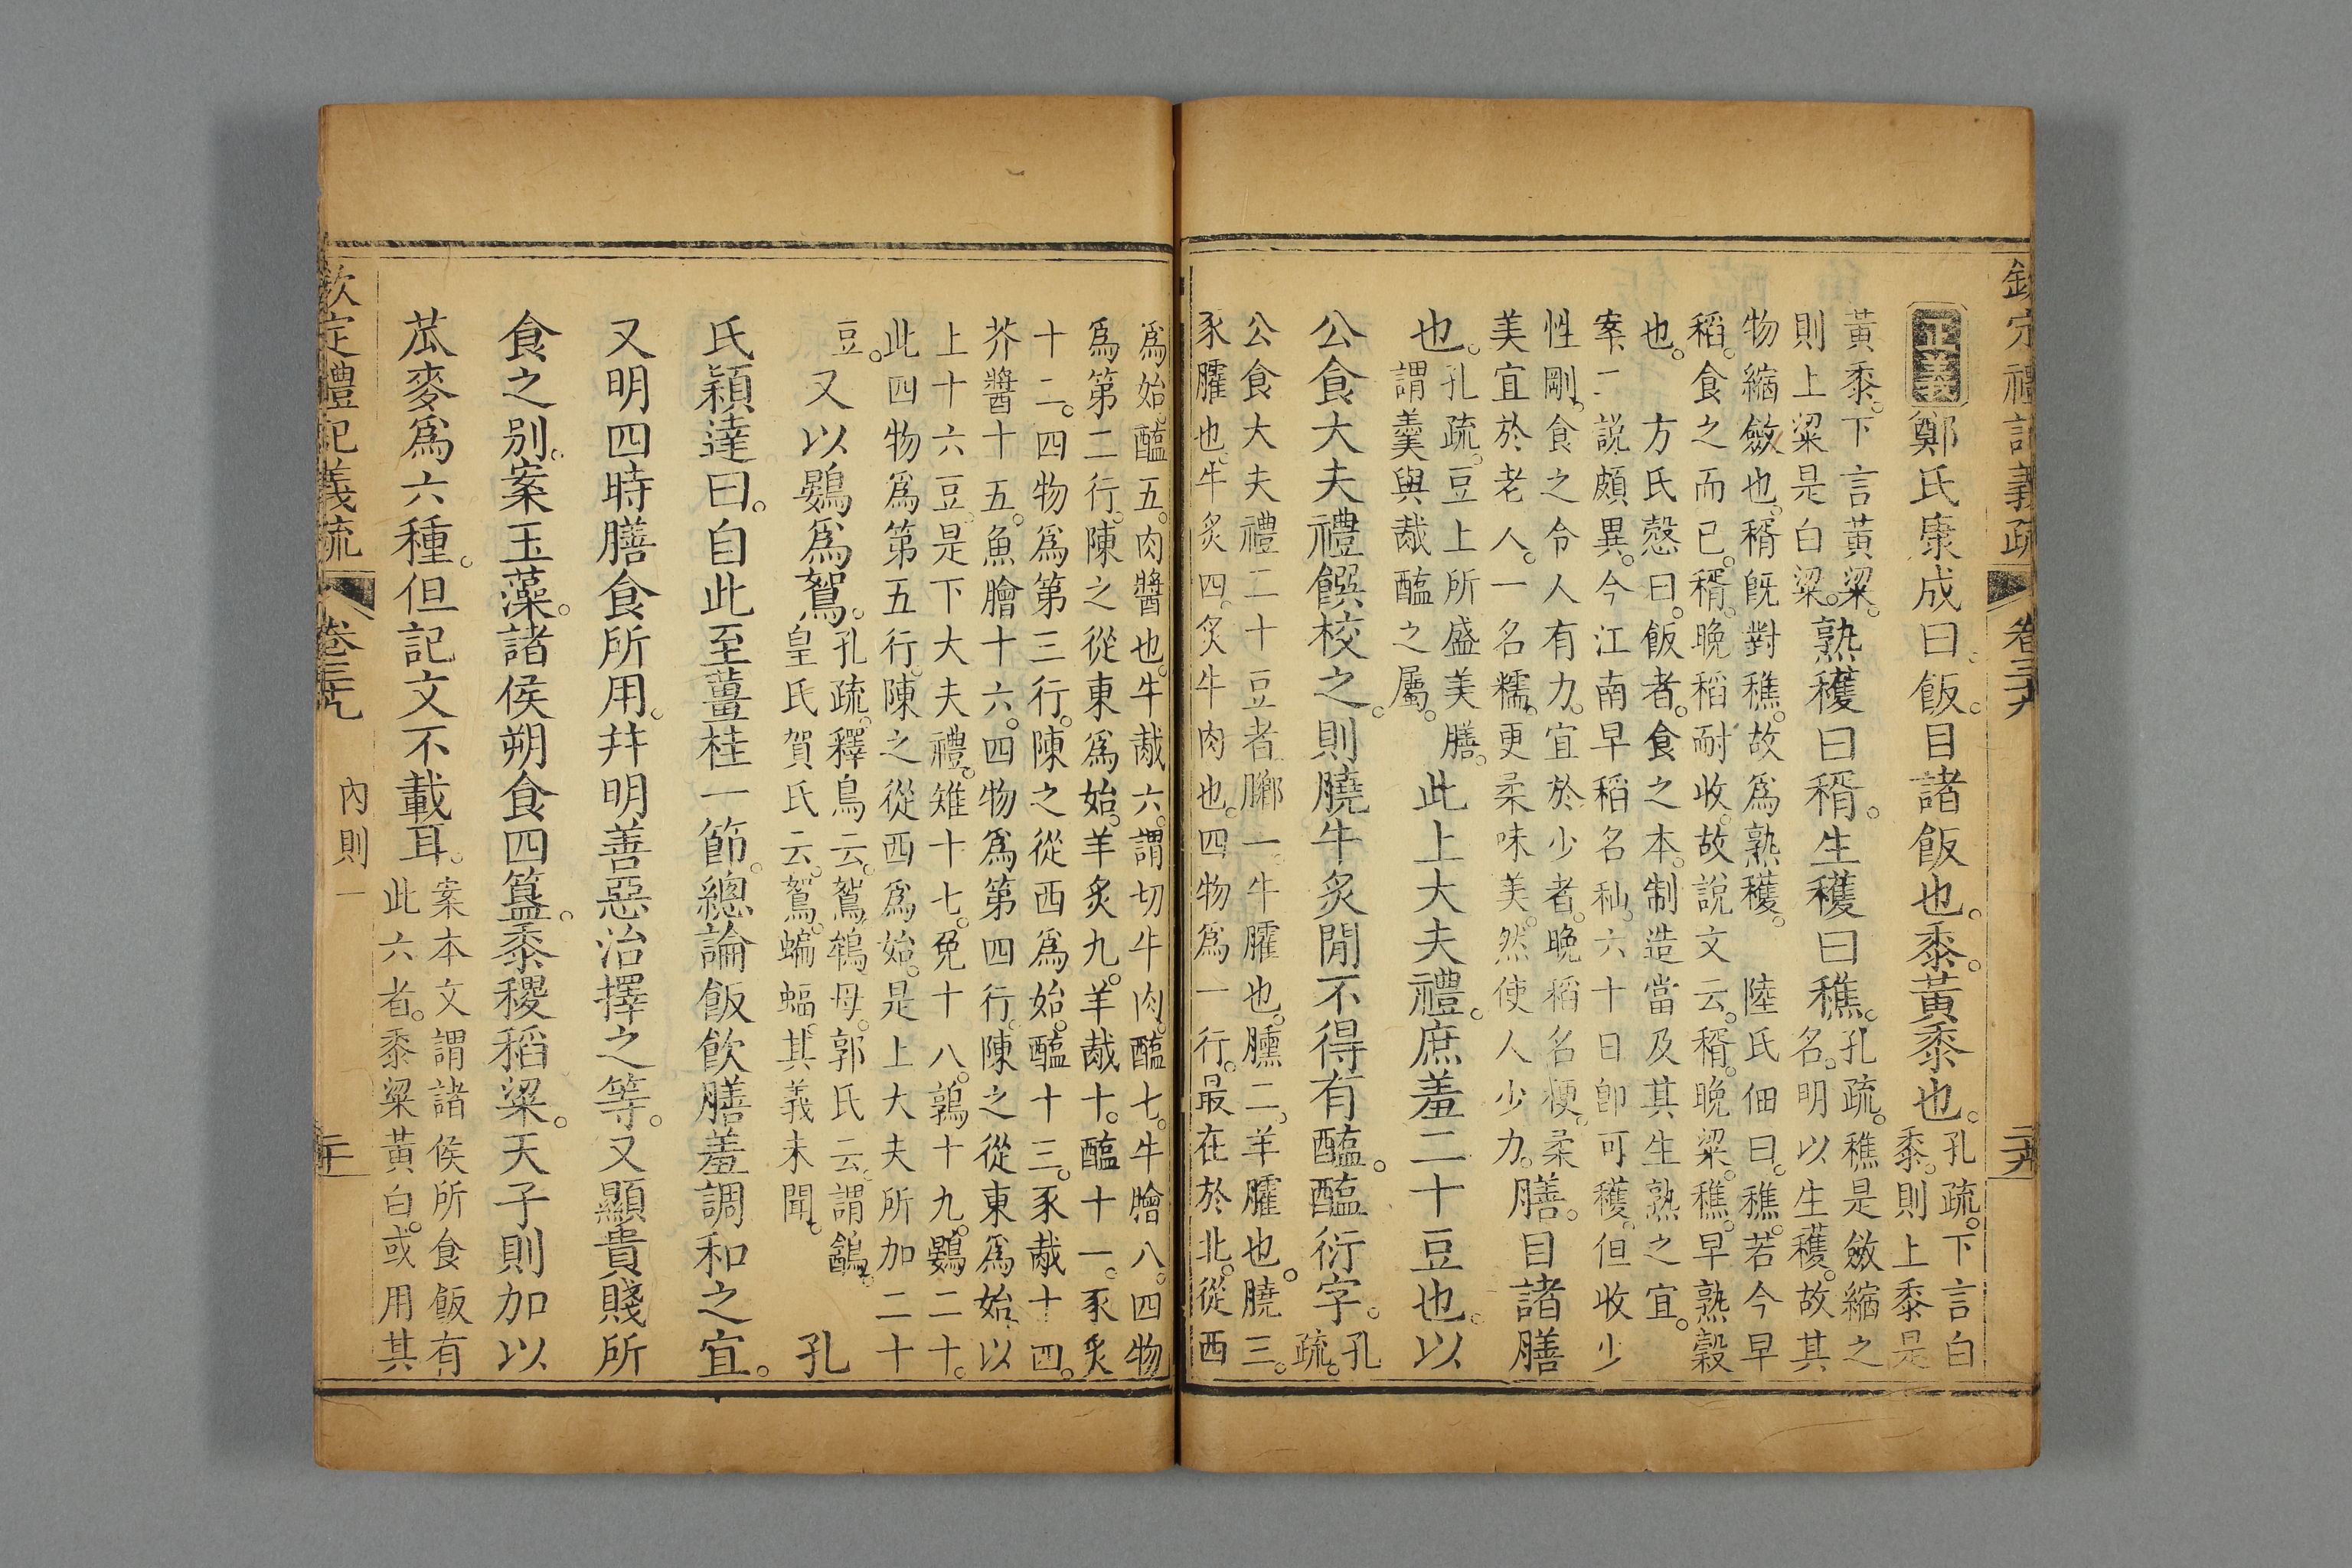 欽定禮記義疏 卷三十九
正義鄭氏康成曰。飯。目諸飯也。黍。黃黍也。孔疏。下言白
黍。則上黍是
黃黍。下言黃粱。
則上粱是白粱。熟穫曰稰。生穫曰穛。孔疏。穛是斂縮之
名。明以生穫。故其
物縮斂也。稰旣對穛。故爲熟穫。 陸氏佃曰。穛。若今早
稻。食之而已。稰。晚稻耐收。故說文云。稰。晚粱。穛。早熟穀
也。 方氏慤曰。飯者。食之本。制造當及其生熟之宜。
案二說頗異。今江南早稻名秈。六十日卽可穫。但收少
性剛。食之令人有力。宜於少者。晚稻名粳。柔
美宜於老人。一名糯。更柔味美。然使人少力。膳。目諸膳
也。孔疏。豆上所盛美膳。
謂羹與胾醢之屬。此上大夫禮。庶羞二十豆也。以
公食大夫禮饌校之。則膮牛炙閒不得有醢。醢衍字。孔
疏。
公食大夫禮二十豆者。膷一。牛臛也。臐二。羊臛也。膮三。
豕臛也。牛炙四。炙牛肉也。四物爲一行。最在於北。從西
爲始。醢五。肉醬也。牛胾六。謂切牛肉。醢七。牛膾八。四物
爲第二行。陳之從東爲始。羊炙九。羊胾十。醢十一。豕炙
十二。四物爲第三行。陳之從西爲始。醢十三。豕胾十四。
芥醬十五。魚膾十六。四物爲第四行。陳之從東爲始。以
上十六豆。是下大夫禮。雉十七。兔十八。鶉十九。鷃二十。
此四物爲第五行。陳之從西爲始。是上大夫所加二十
豆。又以鷃爲鴽。孔疏。釋鳥云。鴽。鴾母。郭氏云。謂鷂。
皇氏賀氏云。鴽。蝙蝠。其義未聞。 孔
氏穎達曰。自此至薑桂一節。總論飯飮膳羞調和之宜。
又明四時膳食所用。幷明善惡治擇之等。又顯貴賤所
食之別。案玉藻。諸侯朔食四簋。黍稷稻粱。天子則加以
苽麥爲六種。但記文不載耳。案本文謂諸侯所食飯有
此六者。黍粱黃白。或用其
欽定禮記義疏 卷三十九 內則一 二十